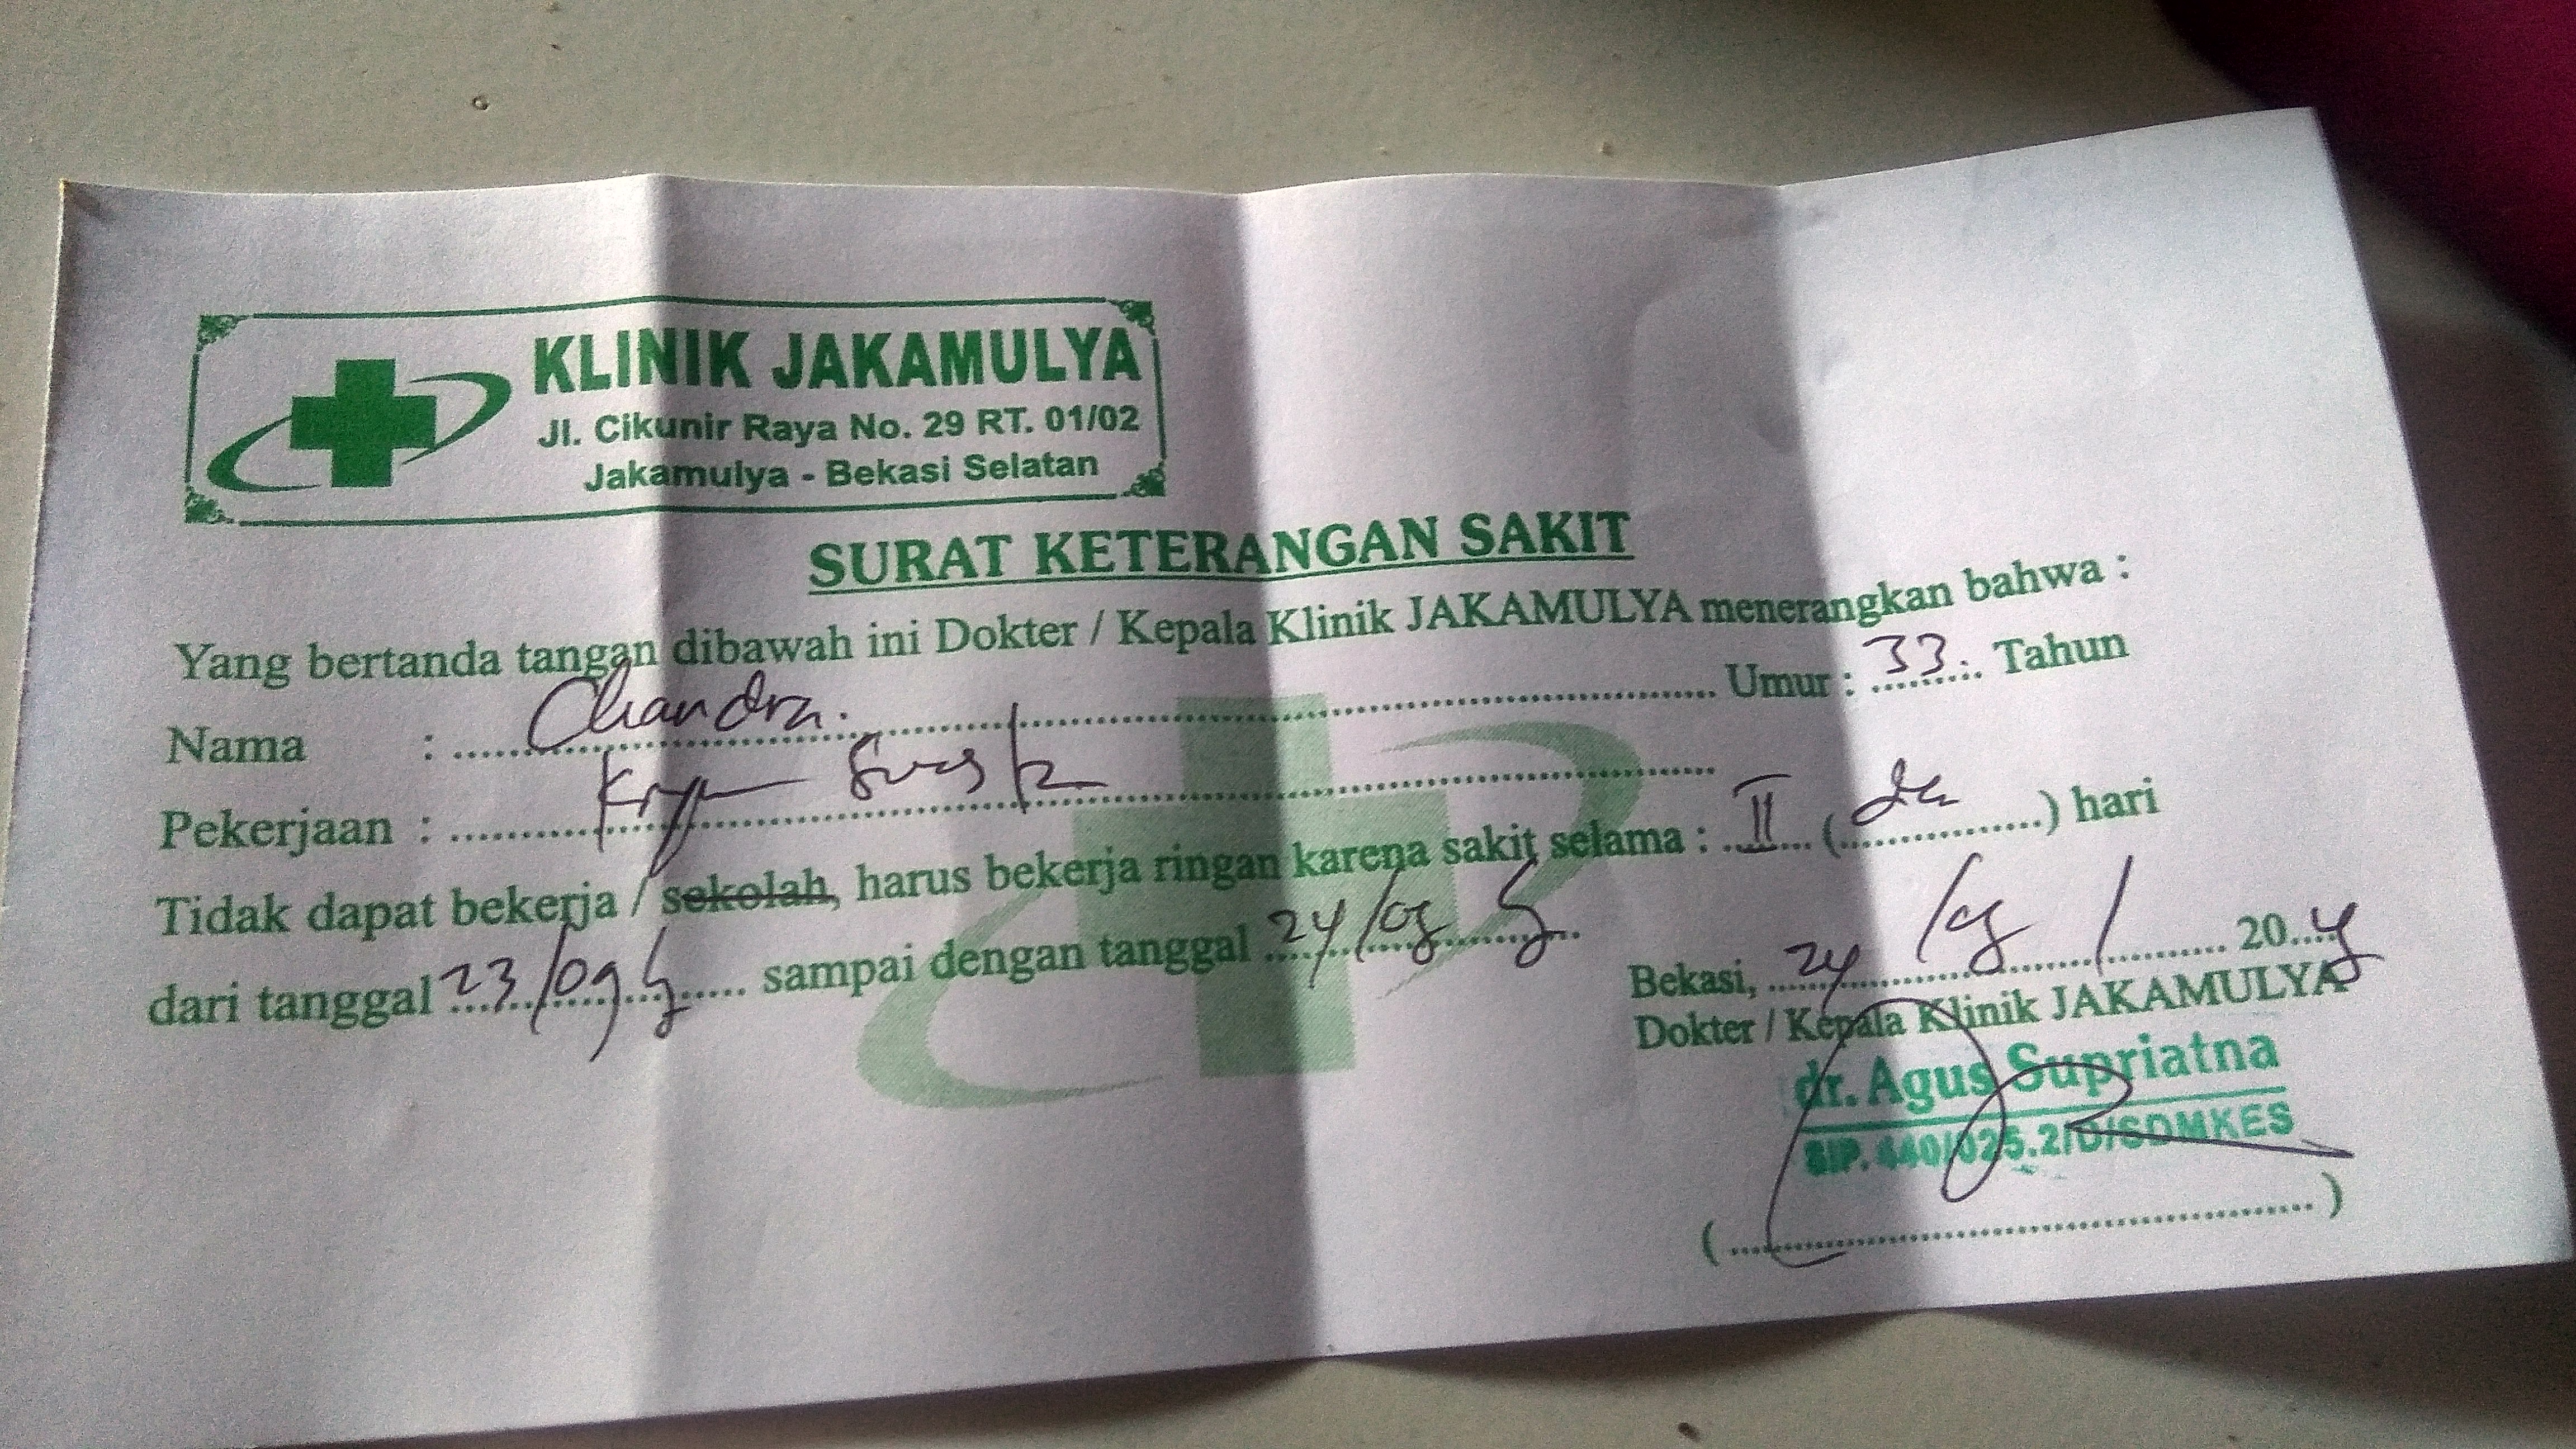 KLINIK JAKAMULYA
Jl. Cikunir Raya No. 29 RT. 01/02
Jakamulya - Bekasi Selatan
SURAT KETERANGAN SAKIT
Yang bertanda tangan dibawah ini Dokter / Kepala Klinik JAKAMULYA menerangkan bahwa :
Nama : Chandra. Umur : 33 Tahun
Pekerjaan :
Tidak dapat bekerja / sekolah, harus bekerja ringan karena sakit selama : II (dua) hari
dari tanggal 23/09 sampai dengan tanggal 24/09
Bekasi, 24/09/ 20
Dokter / Kepala Klinik JAKAMULYA
dr. Agus Supriatna
SIP. 440/025.2/D/SDMKES